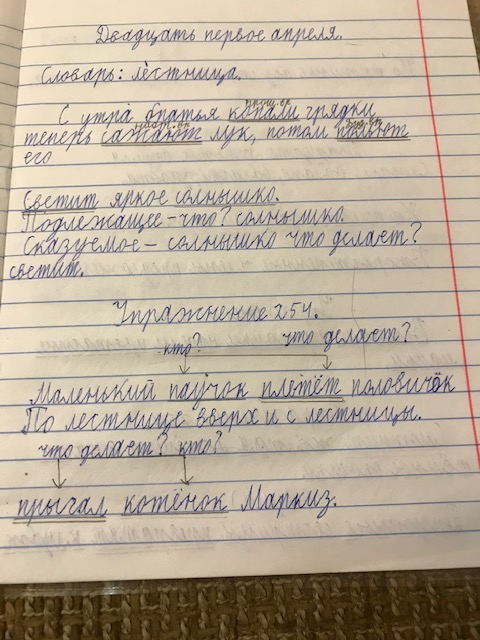 Двадцать первое апреля.
Словарь: лестница.
прош.вр
С утра братья копали грядки,
наст.вр буд.вр
теперь сажают лук, потом польют
его
Светит яркое солнышко.
Подлежащее – что? солнышко.
Сказуемое – солнышко что делает?
светит.
Упражнение 254.
кто? что делает?
Маленький паучок плетёт половичок
По лестнице вверх и с лестницы.
что делает? кто?
прыгал котёнок Маркиз.